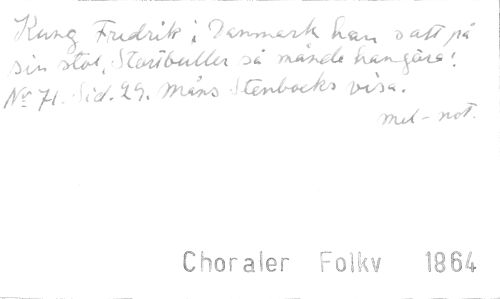 Kung Fredrik i Danmark han satt på
sin stol, Stortbuller så månde han göra!
No 71. Sid. 29. Måns Stenbocks visa.
mel-not.
Choraler Folkv 1864